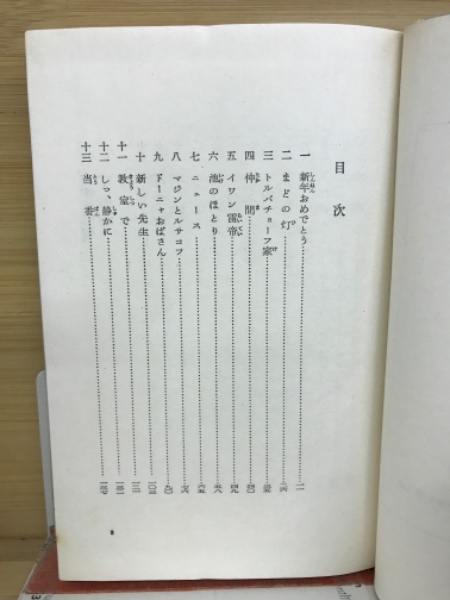 目次
一 新年おめでとう……一一
二 まどの灯……二六
三 トルバチョーフ家……三五
四 仲間……四〇
五 イワン雷帝……四九
六 池のほとり……五八
七 ニュース……六五
八 マジンとルサコフ……七八
九 ドーニャおばさん……九〇
十 新しい先生……一〇三
十一 教室で……一一二
十二 しっ、静かに……一二一
十三 当番……一三七
8